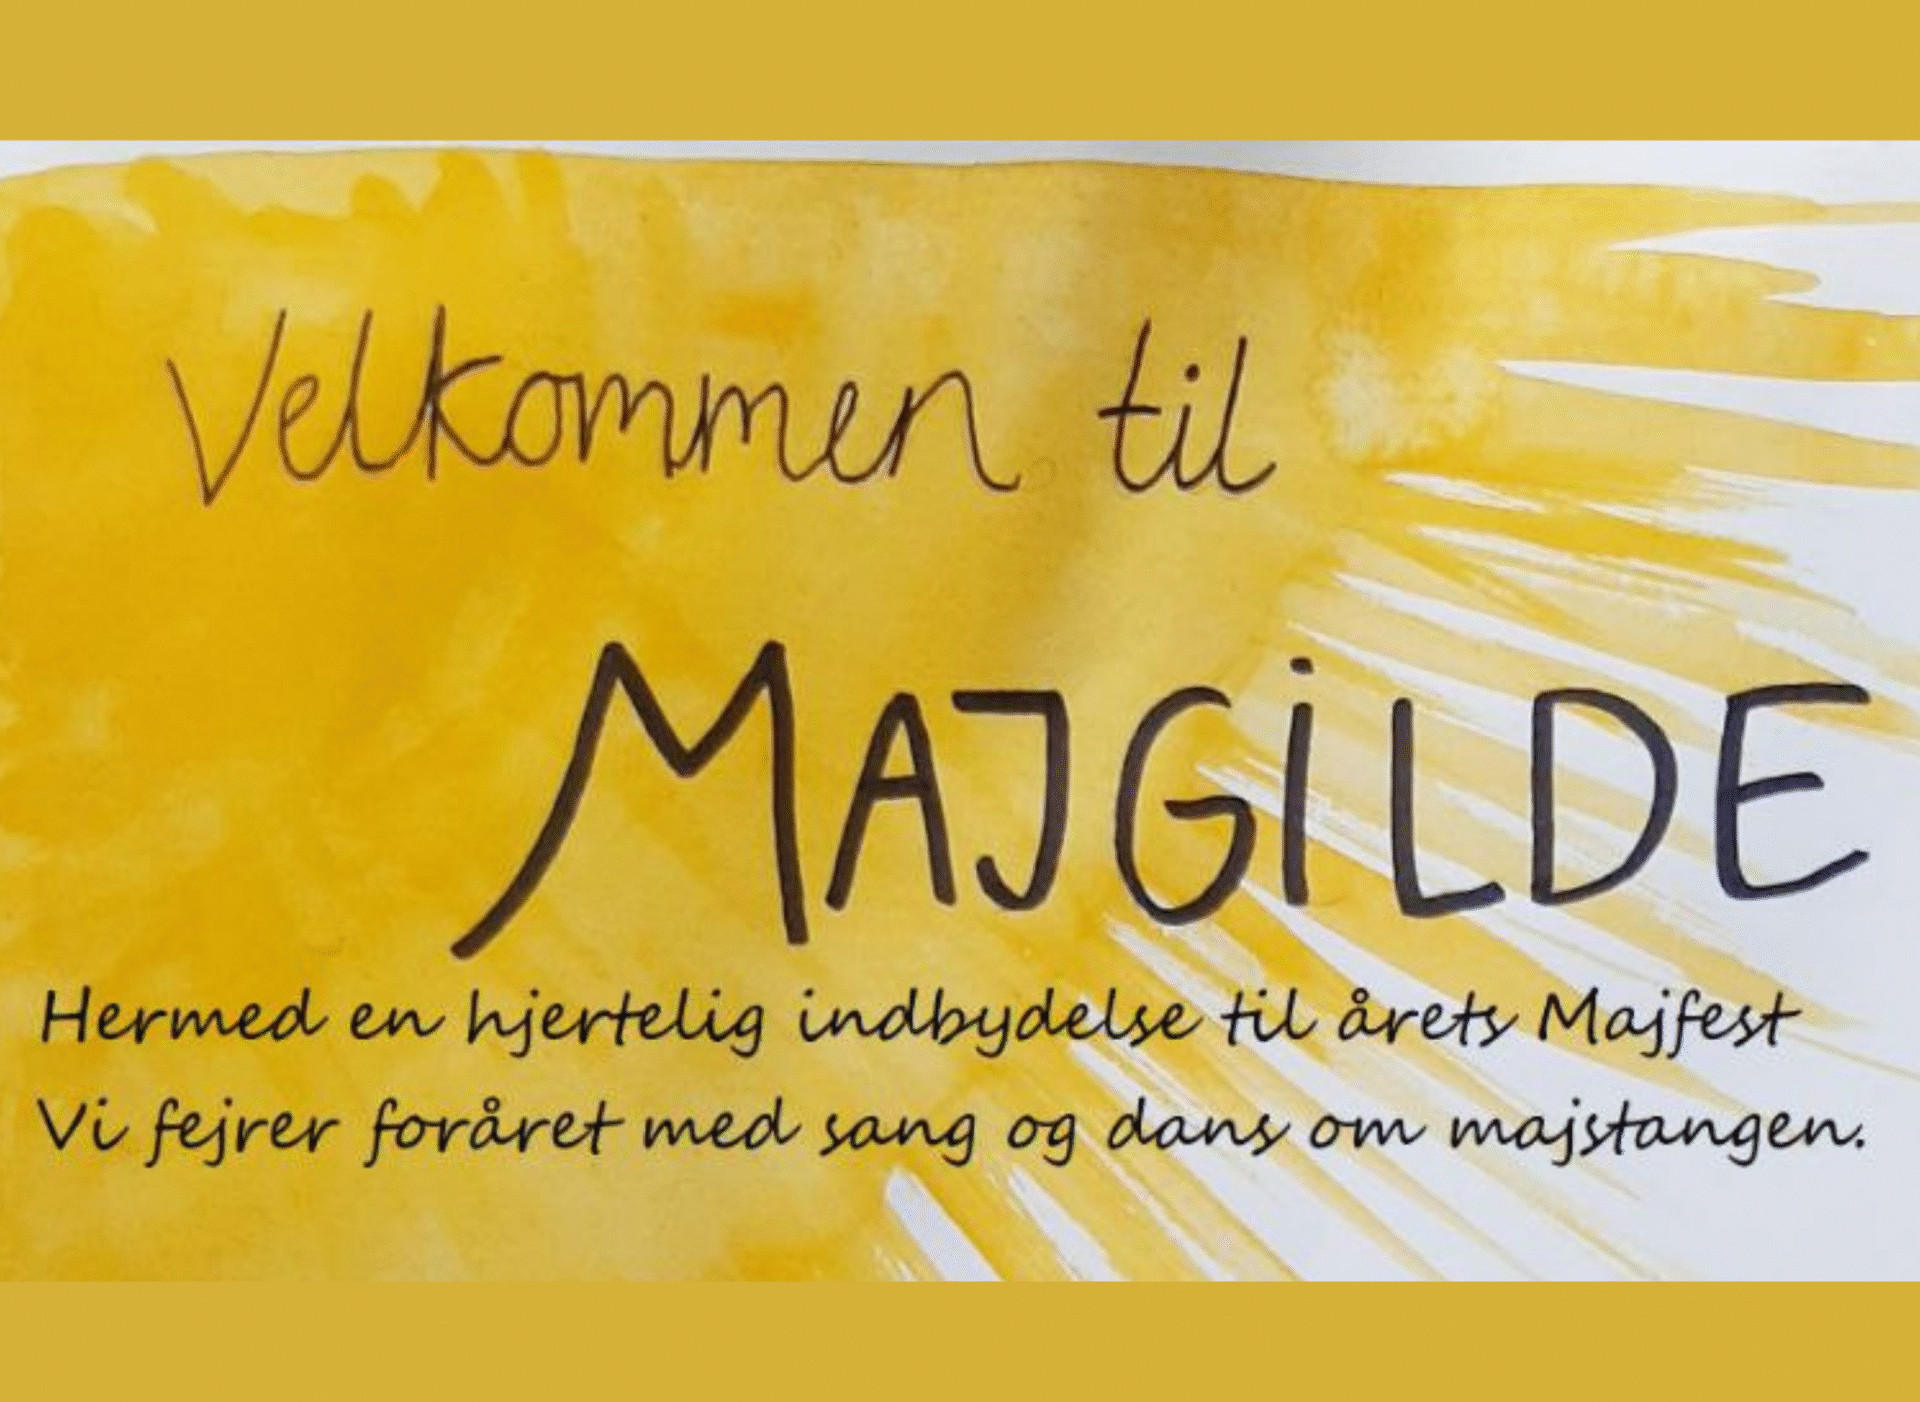 Velkommen til
MAJGiLDE
Hermed en hjertelig indbydelse til årets Majfest
Vi fejrer foråret med sang og dans om majstangen.